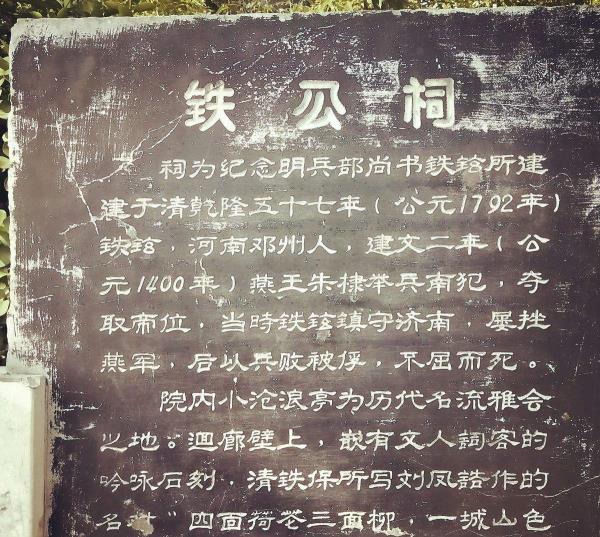 铁公祠
祠为纪念明兵部尚书铁铉所建
建于清乾隆五十七年(公元1792年)
铁铉，河南邓州人，建文二年(公
元1400年)燕王朱棣举兵南犯，夺
取帝位，当時铁铉鎮守济南，屡挫
燕军，后以兵败被俘，不屈而死。
院内小沧浪亭为历代名流雅会
之地。迴廊壁上，嵌有文人詞客的
吟咏石刻，清铁保所写刘凤誥作的
名对"四面荷花三面柳，一城山色